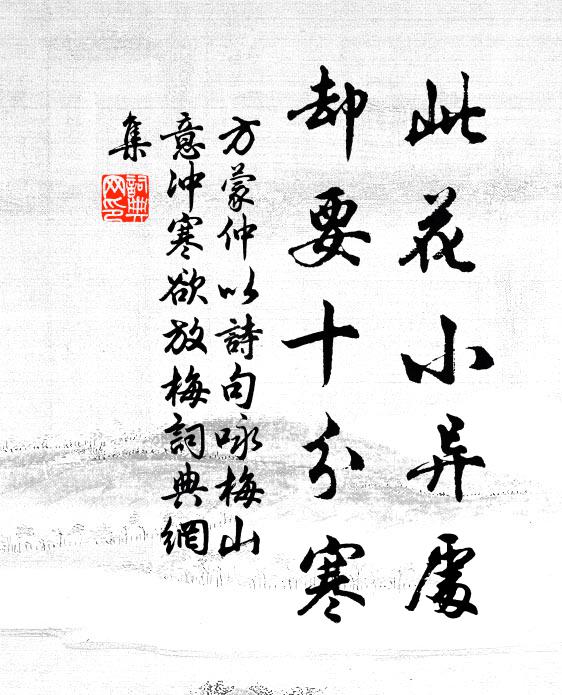 此花小异處
却要十分寒
方蒙仲以詩句咏梅山
意冲寒欲放梅詞典網
集
詞典
网印